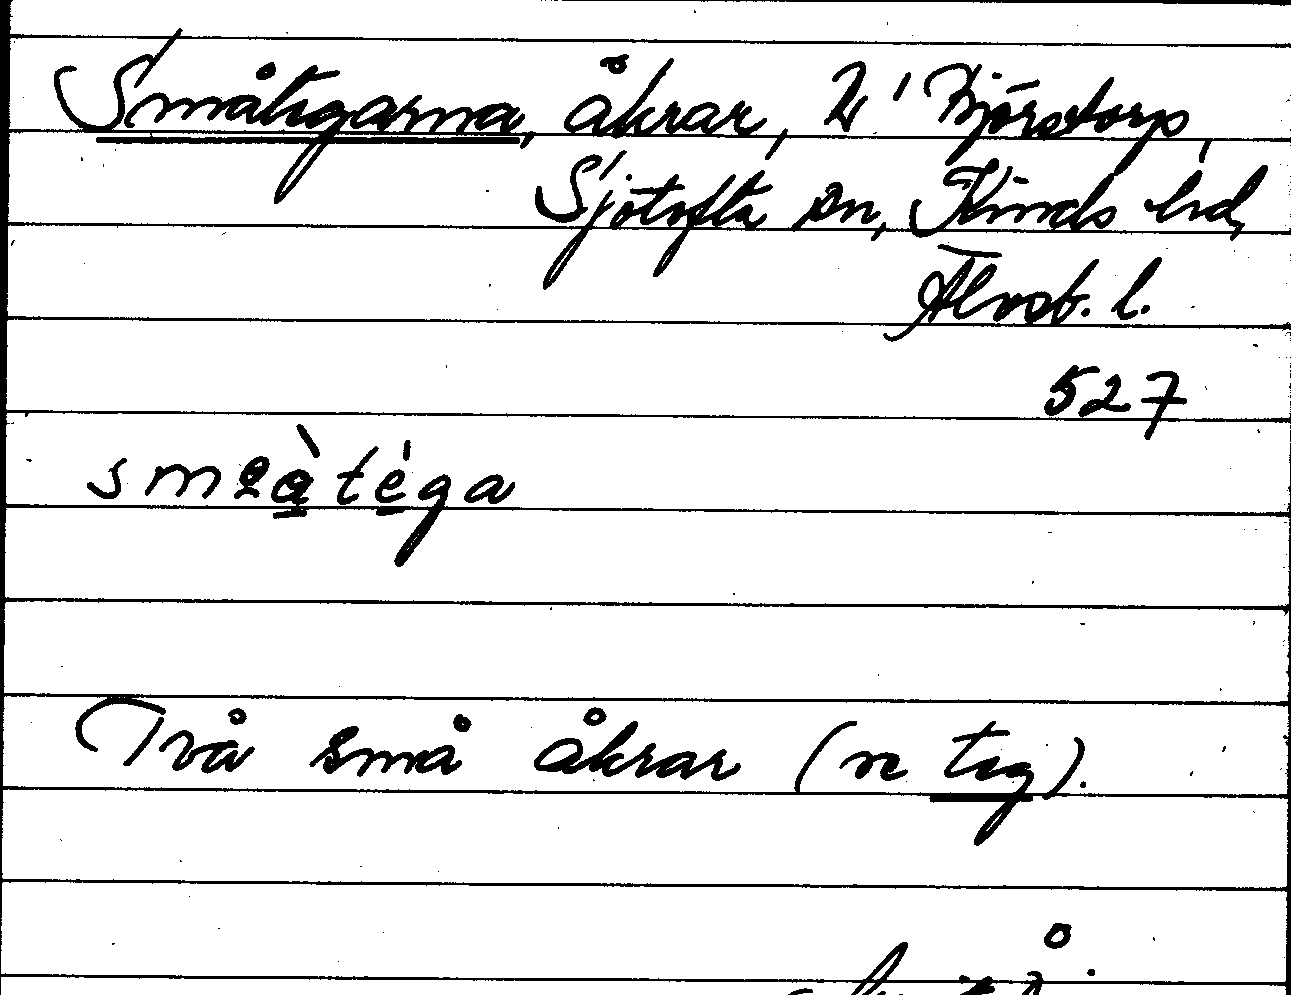 Småtegarna, åkrar, 2/1 Björstorp,
Sjötofta sn, Kinds hd,
Älvsb. l.
527
Två små åkrar (se teg).